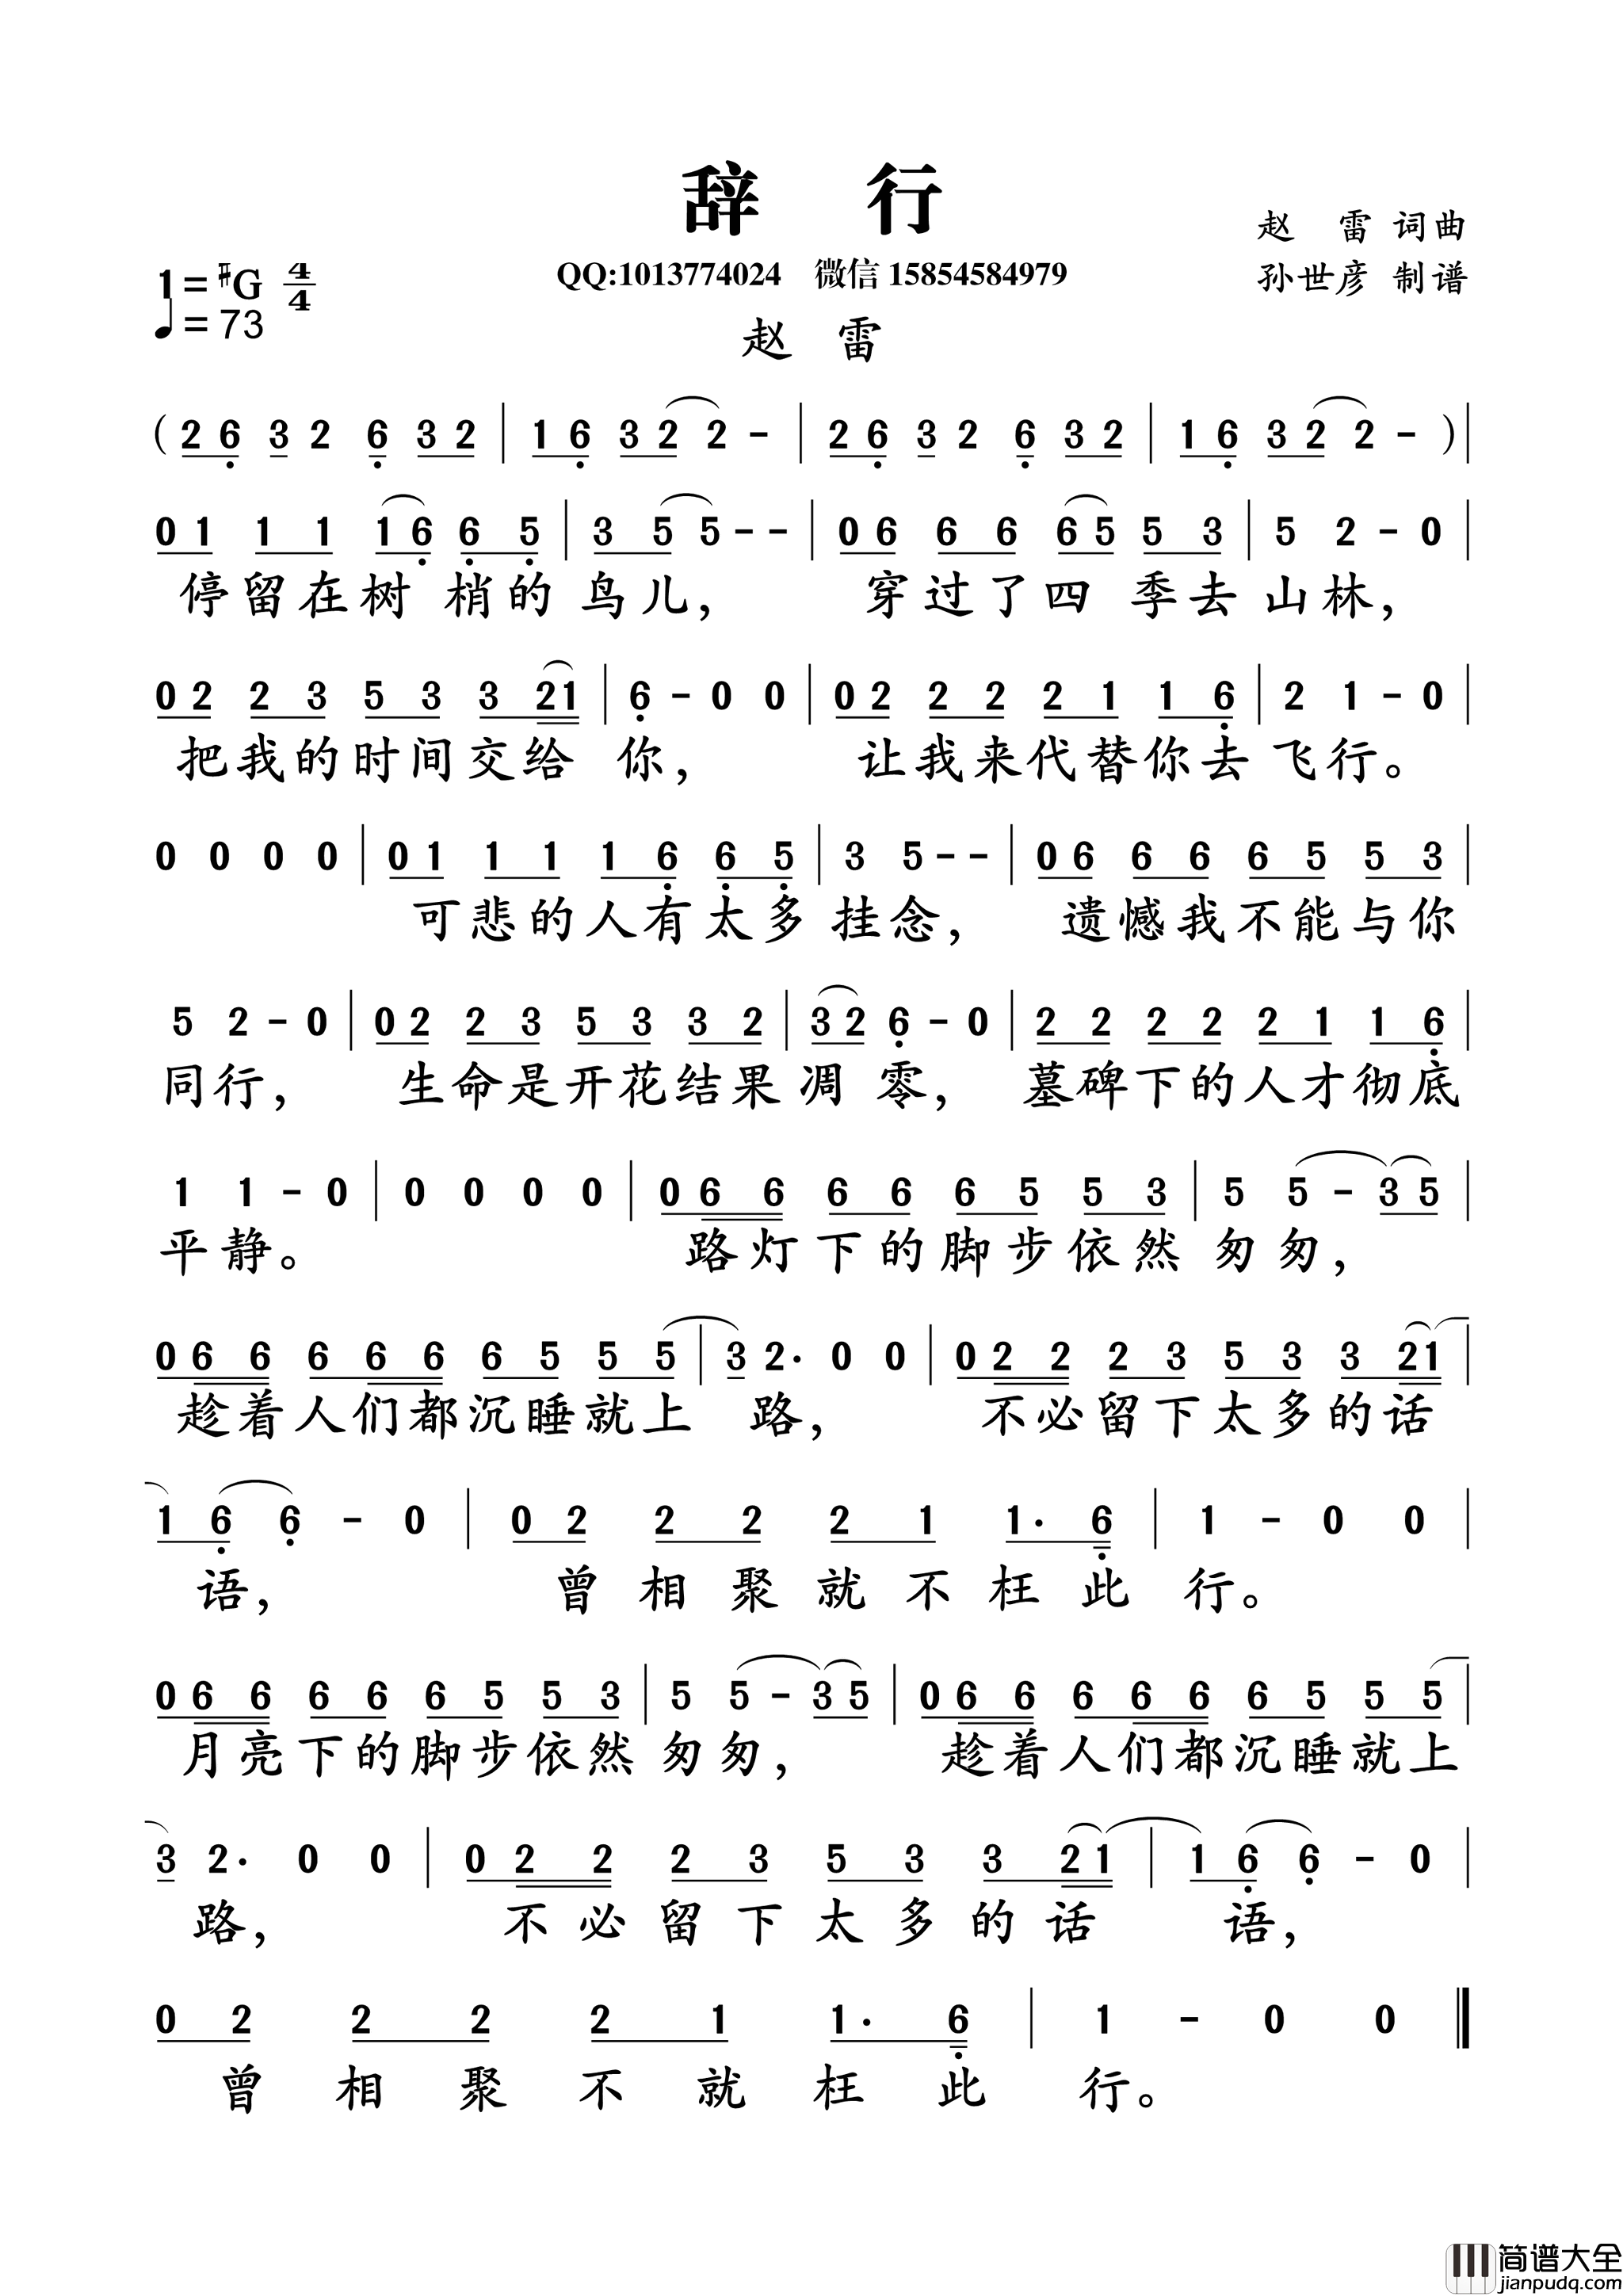 辞 行
赵 雷 词曲
QQ:1013774024 微信 15854584979
孙世彦 制谱
1=#G 4/4
♩= 73
赵 雷
( 2 6̣ 3 2 6̣ 3 2 | 1 6̣ 3 2 2 - | 2 6̣ 3 2 6̣ 3 2 | 1 6̣ 3 2 2 - ) |
0 1 1 1 1 6̣ 6̣ 5̣ | 3 5 5 - - | 0 6 6 6 6 5 5 3 | 5 2 - 0 |
停留在树 梢的 鸟儿, 穿过了四 季去 山林,
0 2 2 3 5 3 3 2 1 | 6̣ - 0 0 | 0 2 2 2 2 1 1 6̣ | 2 1 - 0 |
把我的时间交给 你, 让我来代替你去 飞行。
0 0 0 0 | 0 1 1 1 1 6̣ 6̣ 5̣ | 3 5 - - | 0 6 6 6 6 5 5 3
可悲的人有太多 挂念, 遗憾我不能与你
5 2 - 0 | 0 2 2 3 5 3 3 2 | 3 2 6̣ - 0 | 2 2 2 2 2 1 1 6̣ |
同行, 生命是开花结果 凋 零, 墓碑下的人才彻底
1 1 - 0 | 0 0 0 0 | 0 6 6 6 6 6 5 5 3 | 5 5 - 3 5 |
平静。 路灯下的脚步依然 匆匆,
0 6 6 6 6 6 6 5 5 5 | 3 2· 0 0 | 0 2 2 2 3 5 3 3 2 1 |
趁着人们都沉睡就上 路, 不必留下太多的话
1 6̣ 6̣ - 0 | 0 2 2 2 2 1 1· 6̣ | 1 - 0 0 |
语, 曾相聚就不枉此 行。
0 6 6 6 6 6 5 5 3 | 5 5 - 3 5 | 0 6 6 6 6 6 6 5 5 5 |
月亮下的脚步依然 匆匆, 趁着人们都沉睡就上
3 2· 0 0 | 0 2 2 2 3 5 3 3 2 1 | 1 6̣ 6̣ - 0 |
路, 不必留下太多的话 语,
0 2 2 2 2 1 1· 6̣ | 1 - 0 0 ‖
曾相聚不就枉此 行。
简谱大全
jianpudq.com